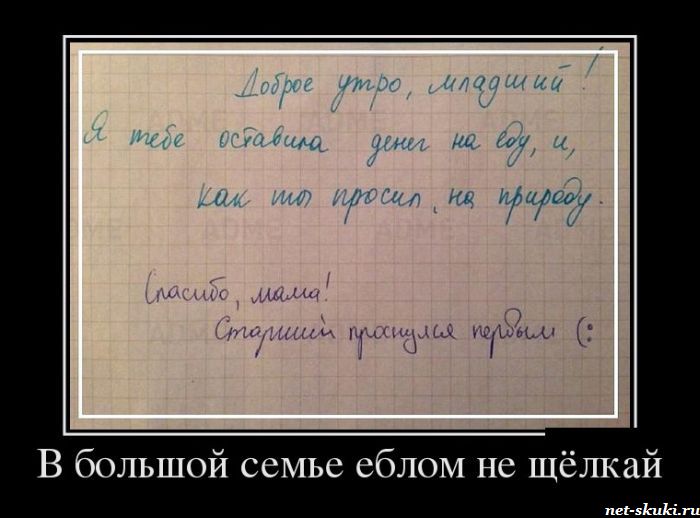 Доброе утро, младший!
Я тебе оставила денег на еду, и,
как ты просил, на природу.
Спасибо, мама!
Старший проснулся первым (:
В большой семье еблом не щёлкай
net-skuki.ru